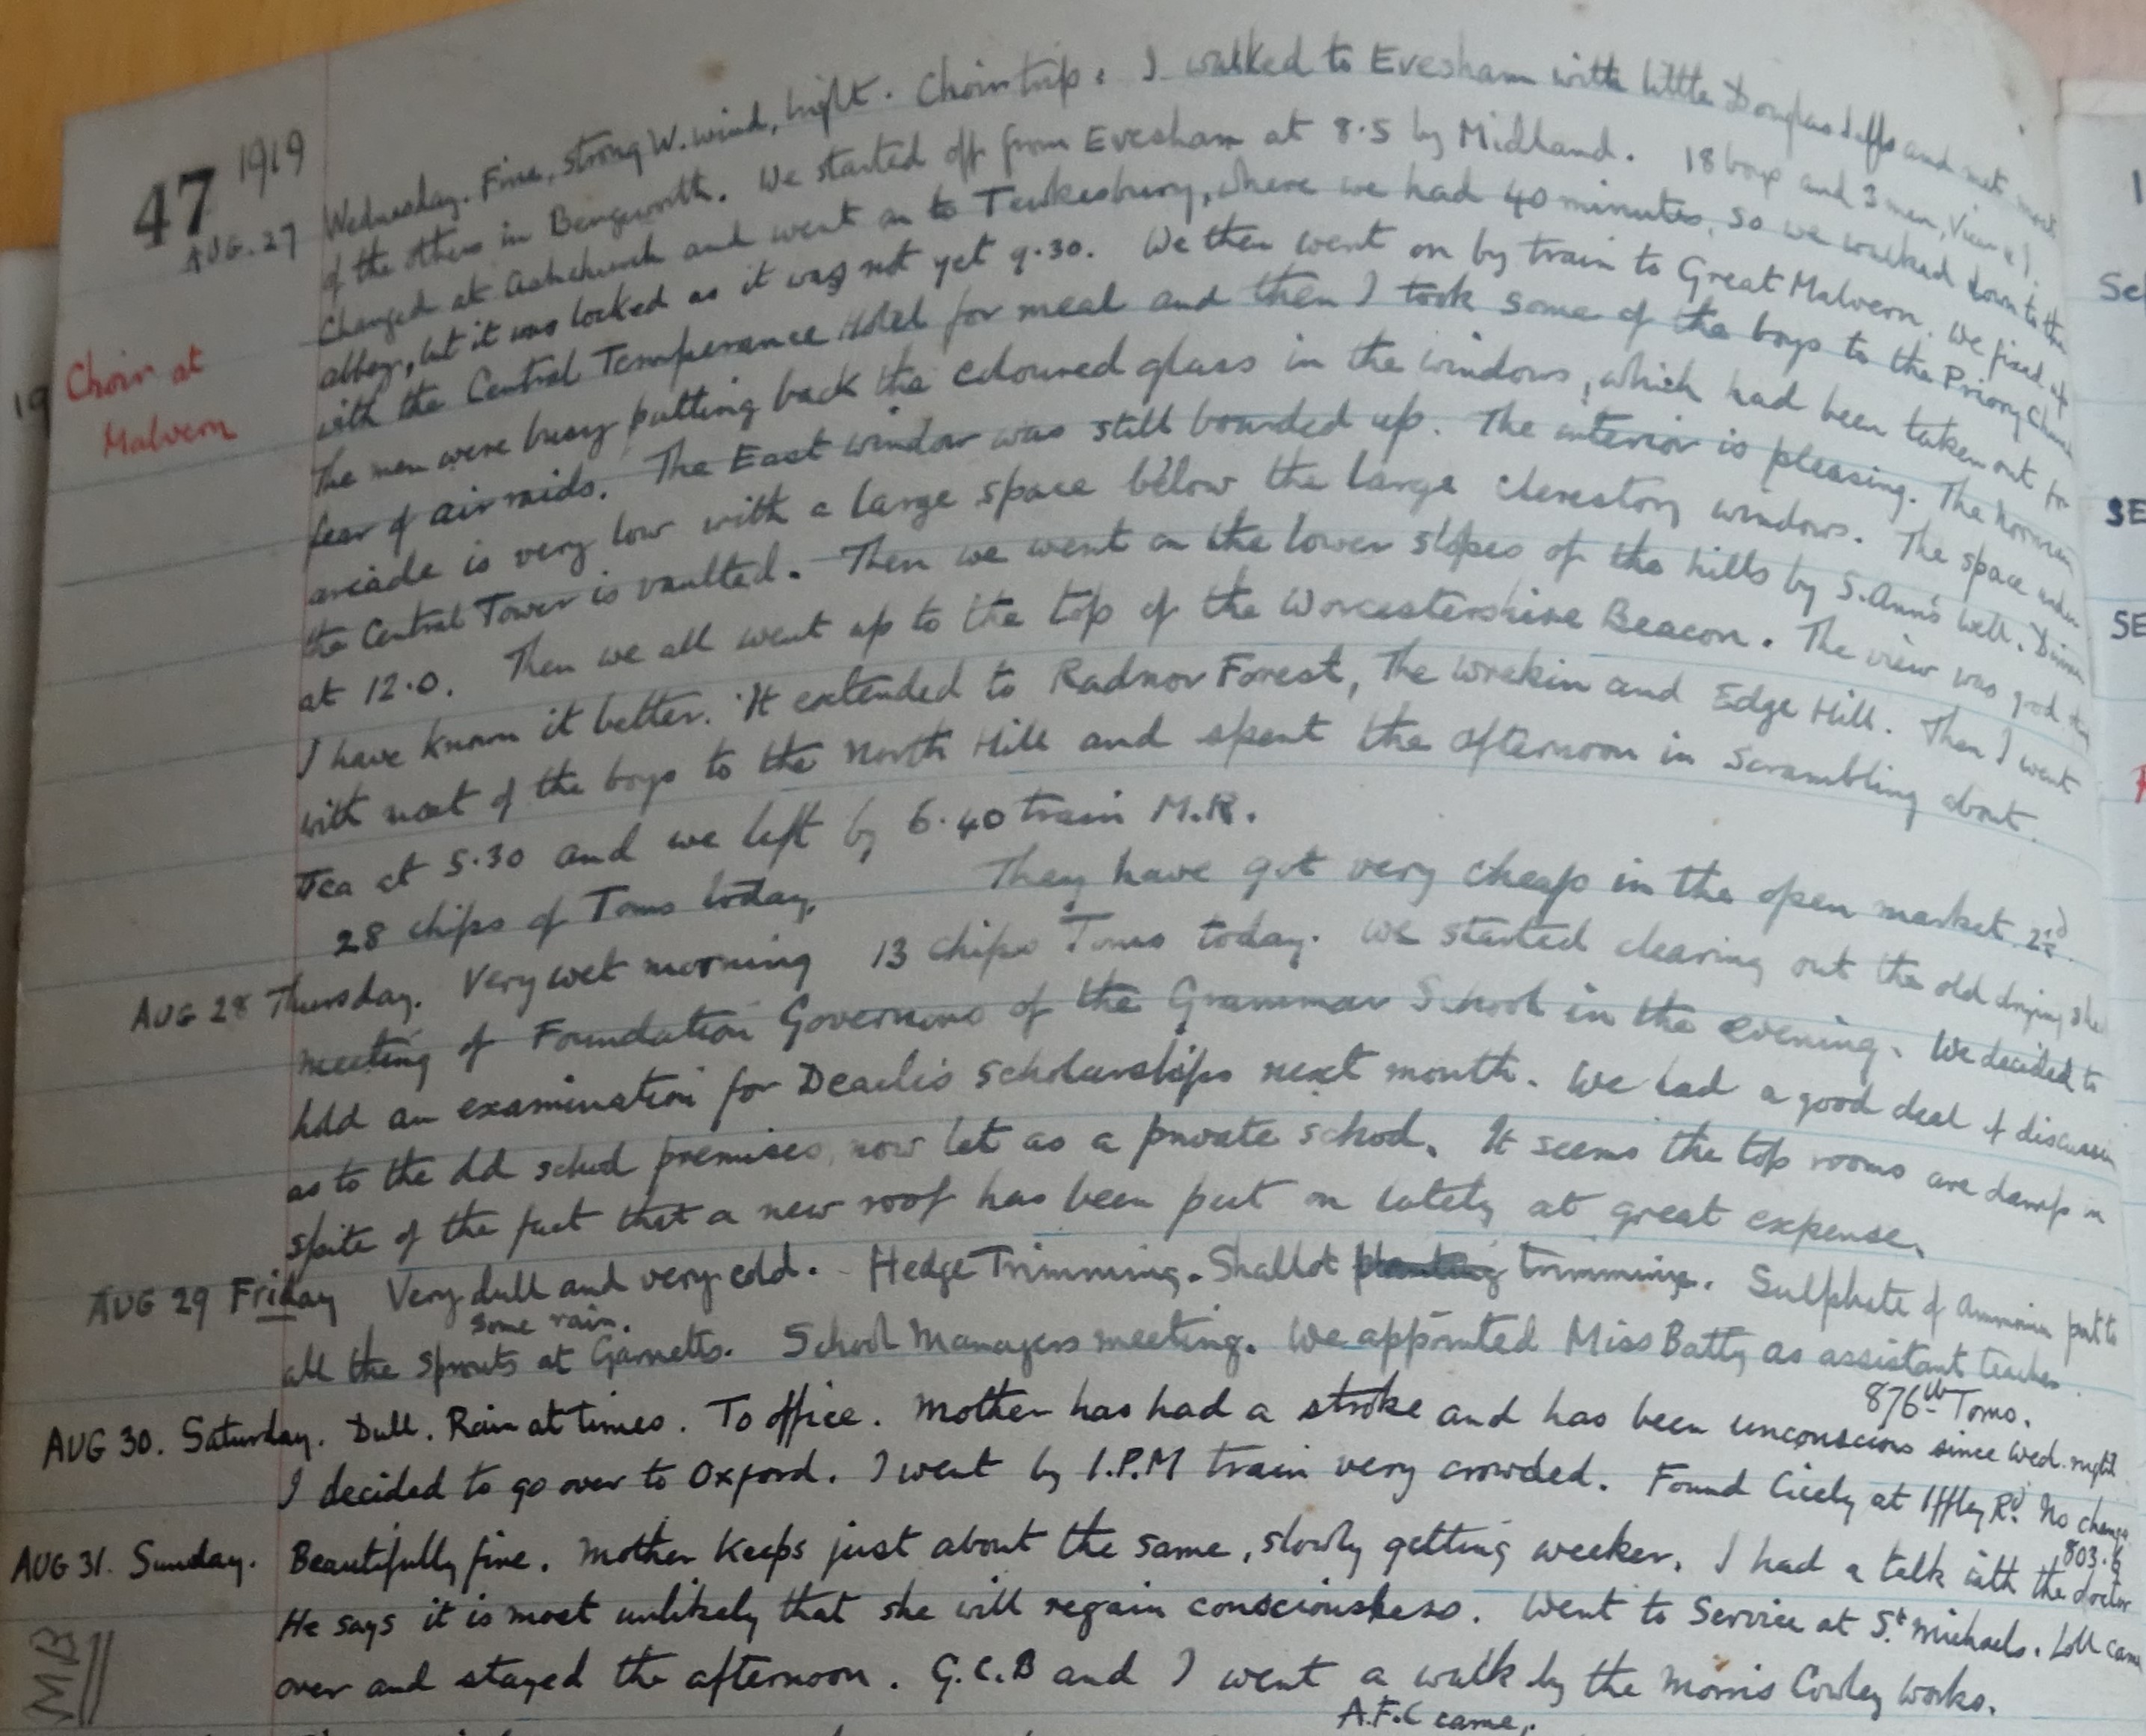 47 1919
AUG. 27 Wednesday. Fine, strong W. wind, bright. Choir trip. I walked to Evesham with little Douglas and met most
of the others in Bengeworth. We started off from Evesham at 8.5 by Midland. 18 boys and 3 men,
Changed at Ashchurch and went on to Tewkesbury, where we had 40 minutes, so we walked down to the
abbey, but it was locked as it was not yet 9.30. We then went on by train to Great Malvern. We fixed up
Choir at
Malvern
with the Central Temperance Hotel for meal and then I took some of the boys to the Priory Church
The men were busy putting back the coloured glass in the windows, which had been taken out for
fear of air raids. The East window was still boarded up. The interior is pleasing. The Norman
arcade is very low with a large space below the large clerestory windows. The space under
the Central Tower is vaulted. Then we went on the lower slopes of the hills by S. Ann's Well. Dinner
at 12.0. Then we all went up to the top of the Worcestershire Beacon. The view was good
I have known it better. It extended to Radnor Forest, The Wrekin and Edge Hill. Then I went
with most of the boys to the North Hill and spent the afternoon in Scrambling about.
Tea at 5.30 and we left by 6.40 train M.R.
28 chips of Toms today. They have got very cheap in the open market
AUG 28 Thursday. Very wet morning 13 chips Toms today. We started clearing out the old drying
meeting of Foundation Governors of the Grammar School in the evening. We decided to
hold an examination for Deacle's scholarships next month. We had a good deal of discussion
as to the old school premises, now let as a private school. It seems the top rooms are damp in
spite of the fact that a new roof has been put on lately at great expense.
AUG 29 Friday Very dull and very cold. Hedge Trimming. Shallot planting trimming. Sulphate of Ammonia put to
some rain.
all the sprouts at Garnetts. School Managers meeting. We appointed Miss Batty as assistant teacher.
876 Toms.
AUG 30. Saturday. Dull. Rain at times. To office. Mother has had a stroke and has been unconscious since Wed. night
I decided to go over to Oxford. I went by 1.P.M train very crowded. Found Cicely at Iffley Rd. No change
803.
AUG 31. Sunday. Beautifully fine. Mother keeps just about the same, slowly getting weaker. I had a talk with the doctor
He says it is most unlikely that she will regain consciousness. Went to Service at St. Michaels. Loll came
over and stayed the afternoon. G.C.B and I went a walk by the Morris Cowley Works.
MB
A.F.C came.